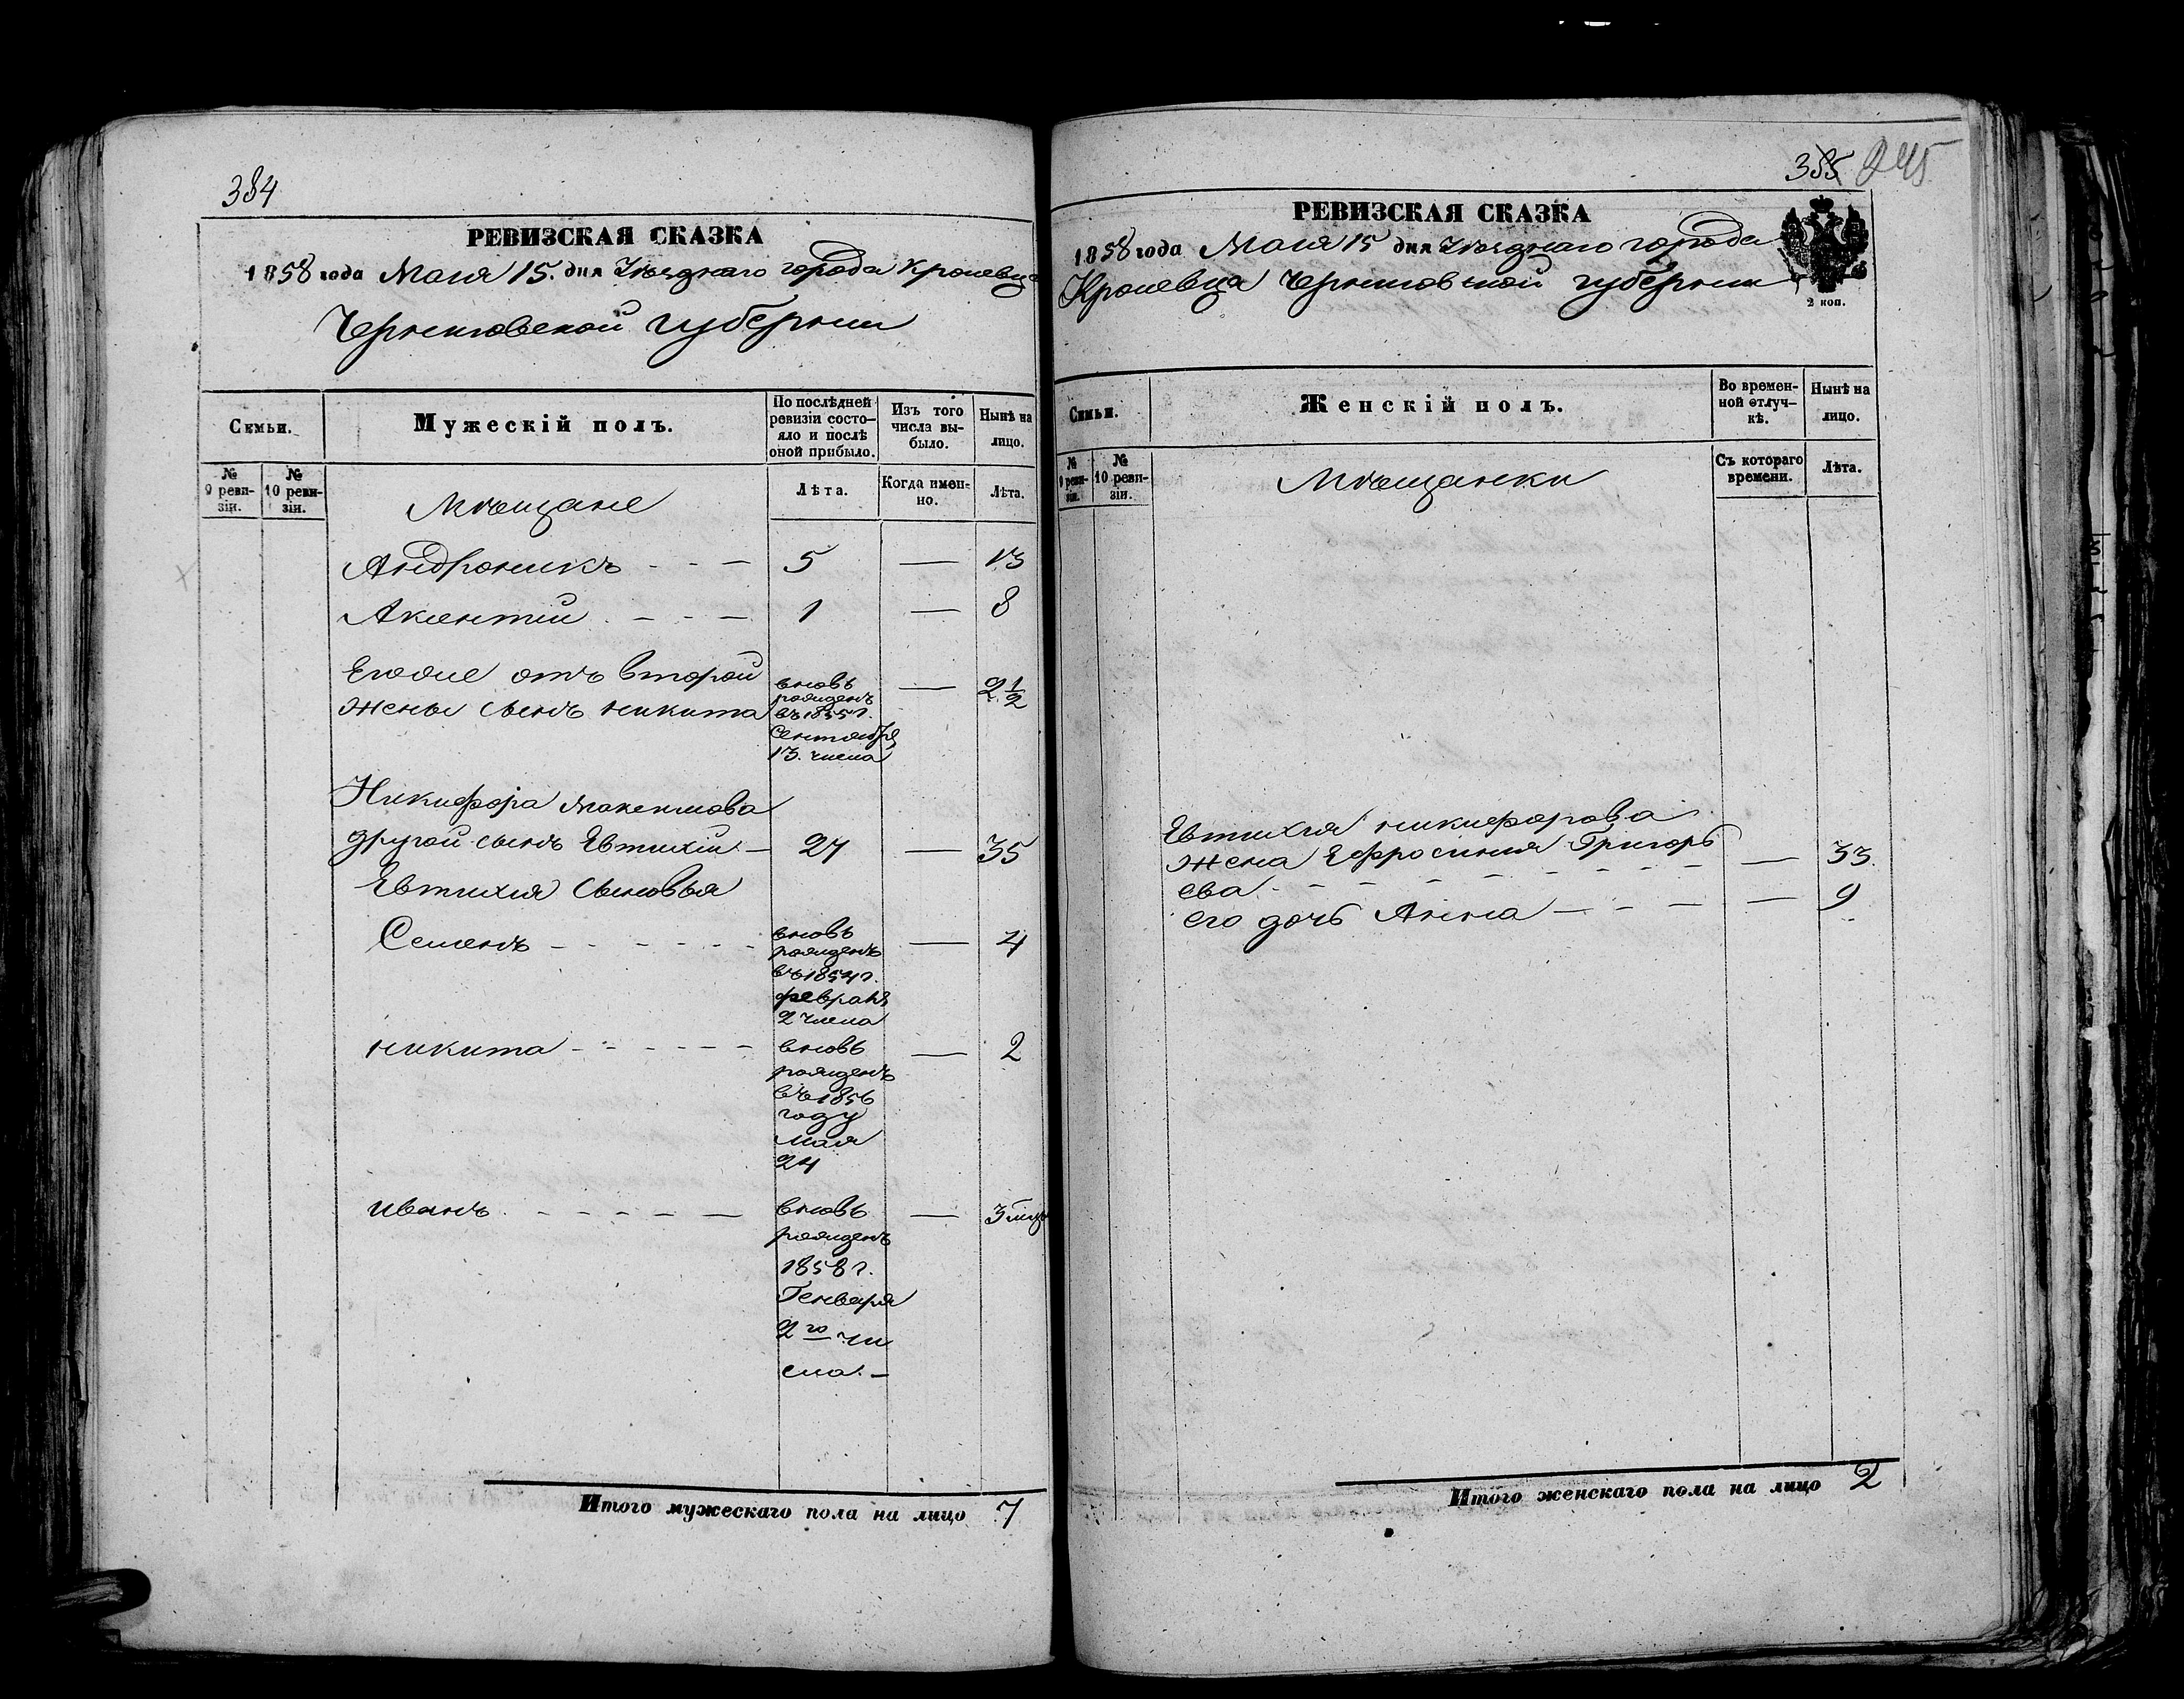 384
РЕВИЗСКАЯ СКАЗКА
1858 года Маія 15. дня Уѣзднаго города Кролевца
Черниговской губерніи
Семьи.
Мужескій полъ.
По послѣдней ревизіи состояло и послѣ оной прибыло.
Изъ того числа выбыло.
Нынѣ на лицо.
№ 9 ревизіи.
№ 10 ревизіи.
Мѣщане
Лѣта.
Когда именно.
Лѣта.
Андроникъ - - - 5 — 13
Акентій - - - 1 — 8
Егоже отъ второй
жены сынъ никита
вновь
рожденъ
въ 1855 г.
Сентября
13. числа
— 2 1/2
Никифора Максимова
другой сынъ Евтихій — 27 — 35
Евтихія сыновья
Семенъ - - - - - -
вновь
рожденъ
въ 1854 г.
февраля
2 числа
— 4
никита - - - - - -
вновь
рожденъ
въ 1856
году
мая
24
— 2
иванъ - - - - - —
вновь
рожденъ
1858 г.
Генваря
2го чи
сла. —
— 3 мѣц
Итого мужескаго пола на лицо 7
385 245
РЕВИЗСКАЯ СКАЗКА
1858 года Маія 15 дня Уѣзднаго города
Кролевца Черниговской губерніи
2 коп.
Семьи.
Женскій полъ.
Во временной отлучкѣ.
Нынѣ на лицо.
№ 9 ревизіи.
№ 10 ревизіи.
Мѣщанки
Съ котораго времени.
Лѣта.
Евтихія никифорова
жена Ефросинія Григорь
ева - - - - - - - — 33.
его дочь Анна — - - — — 9
Итого женскаго пола на лицо 2